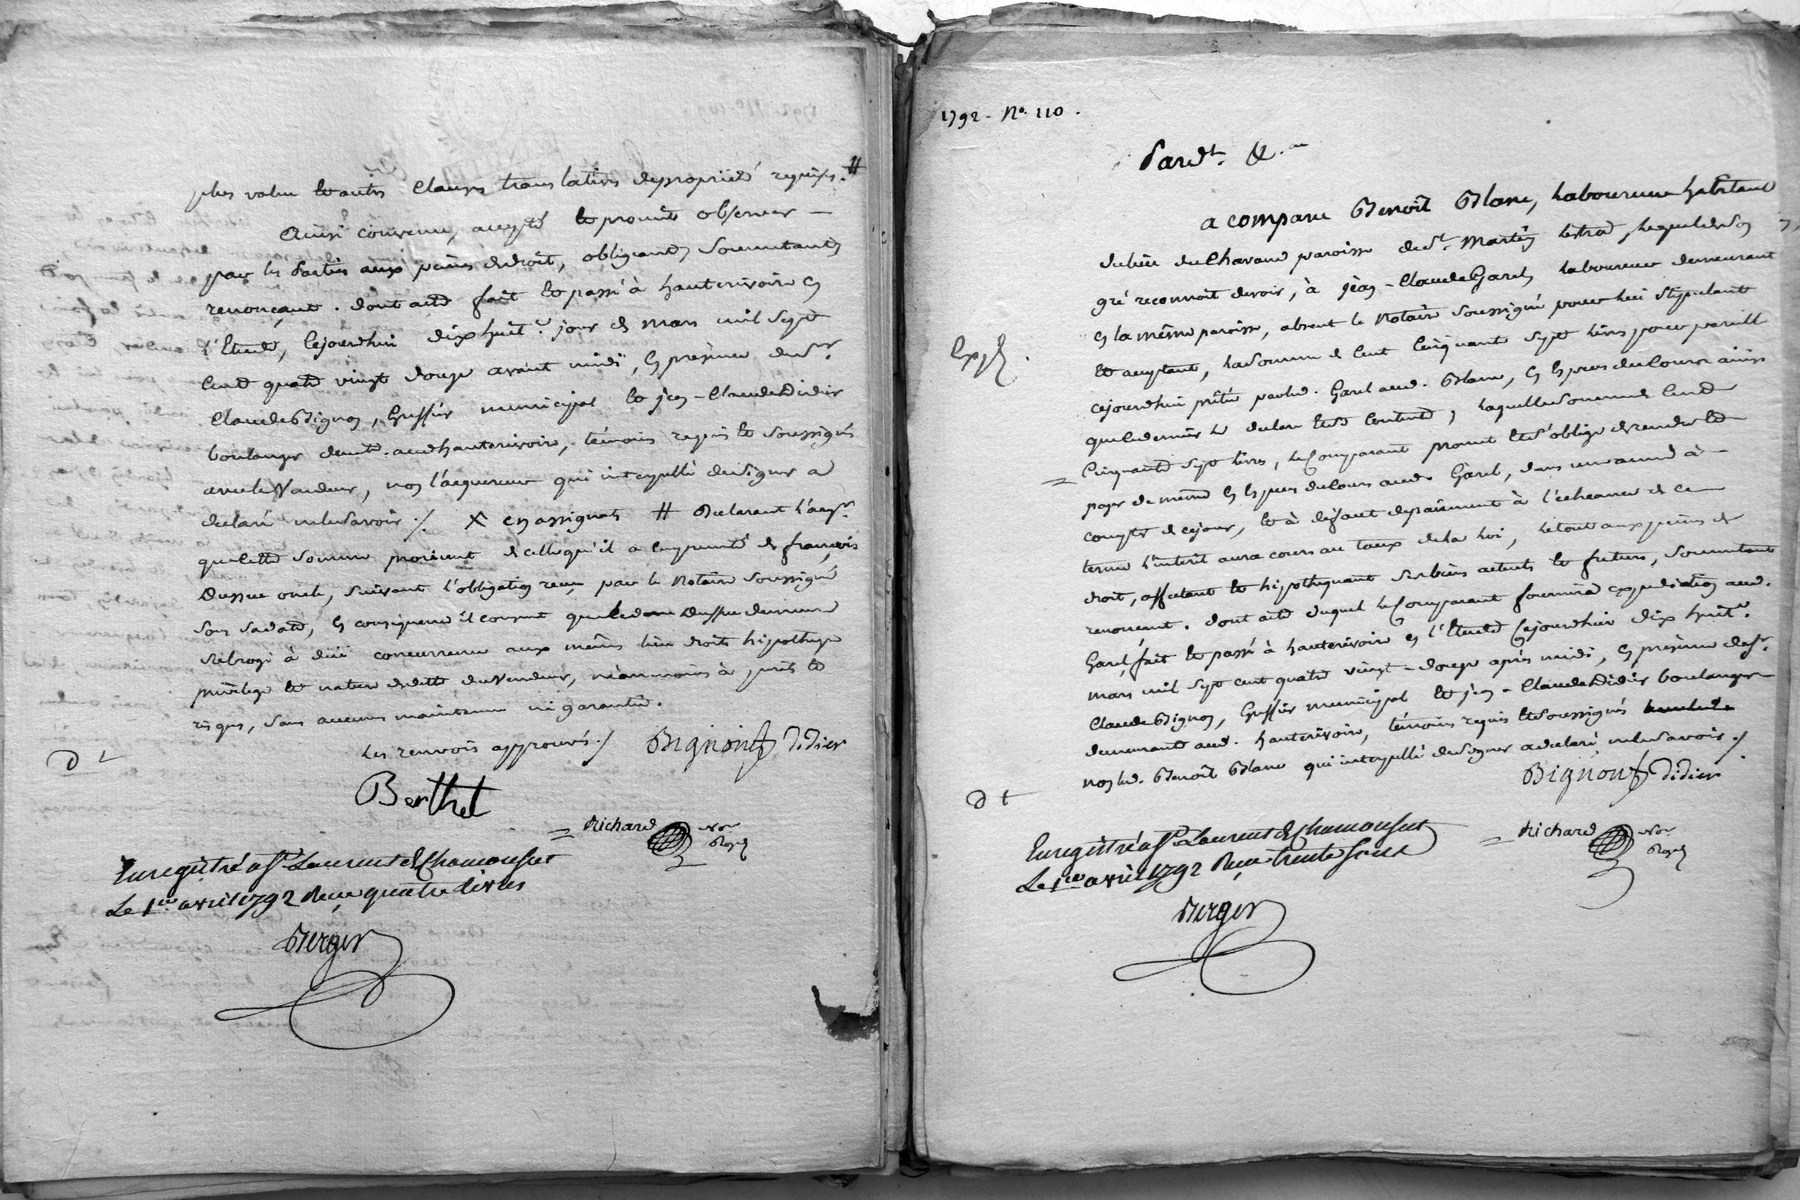 plus value et autres clauses translatives de propriété requises. #
Ainsi convenu, accepté et promis observer —
par les parties aux peines de droit, obligeant, soumettant,
renonçant. dont acte fait et passé à hauterivoire en
l'Etude, cejourdhui dixhuite. jour de mars mil sept
cent quatre vingt douze avant midi, en présence de sr.
Claude Bignon, Greffier municipal et jean-Claude Didier
boulanger demt. aud. hauterivoire, témoins requis et soussignés
avec le Vendeur, non l'acquereur qui interpellé de signer a
déclaré ne le savoir ./. X en assignats # Déclarant l'acqr.
que cette somme provient de celle qu'il a empruntée de françois
Dussue oncle, suivant l'obligation reçue par le Notaire soussigné
sous sa date, en conséquence il consent que led. Dussue demeure
subrogé à dûe concurrence aux mêmes lieu droits hipotheque
privilege et nature de dette du Vendeur, néanmoins à périls et
risques, sans aucune maintenue ni garantie.
Les renvois approuvés ./. Bignon Didier
Berthet
Richard Nore Royal
Enregistré a St. Laurent de Chamousset
Le 1er avril 1792 Reçu quatre livres
Berger
1792 - No. 110.
Pardt. &.
a comparu Benoît Blanc, Laboureur habitant
du lieu du Chavand paroisse de St. Martin Lestrad, lequel de son
gré reconnoit devoir, à jean-Claude Garel laboureur demeurant
en la même paroisse, absent le Notaire soussigné pour lui stipulant
et acceptant, la somme de Cent Cinquante sept livres pour pareille
cejourdhui prêtée par led. Garel aud. Blanc, en especes du cours ainsi
que ce dernier le declare et s'en contente, laquelle somme de Cent
Cinquante sept livres, le Comparant promet et s'oblige de rendre et
payer de même en especes du cours aud. Garel, dans un an à
compter de cejour, et à défaut de paiement à l'échéance de ce
terme l'interêt aura cours au taux de la loi, le tout aux peines de
droit, affectant et hipothequant ses biens actuels et futurs, soumettant
renonçant. dont acte duquel le Comparant fournira expedition aud.
Garel, fait et passé à hauterivoire en l'Etude Cejourdhui dix huite.
mars mil sept cent quatre vingt-douze après midi, en présence de sr.
Claude Bignon, Greffier municipal et jean-Claude Didier boulanger
demeurants aud. hauterivoire, témoins requis et soussignés
non led. Benoît Blanc qui interpellé de signer a déclaré ne le savoir ./.
Bignon Didier
Richard Nore Royal
Enregistré a St. Laurent de Chamousset
Le 1er avril 1792 Reçu trente sous
Berger